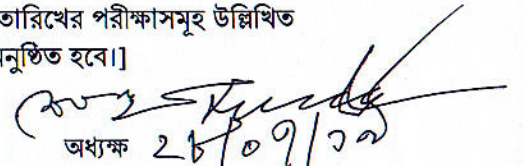 তারিখের পরীক্ষাসমূহ উল্লিখিত
নুষ্ঠিত হবে।]
অধ্যক্ষ ২৮/০৭/১৯